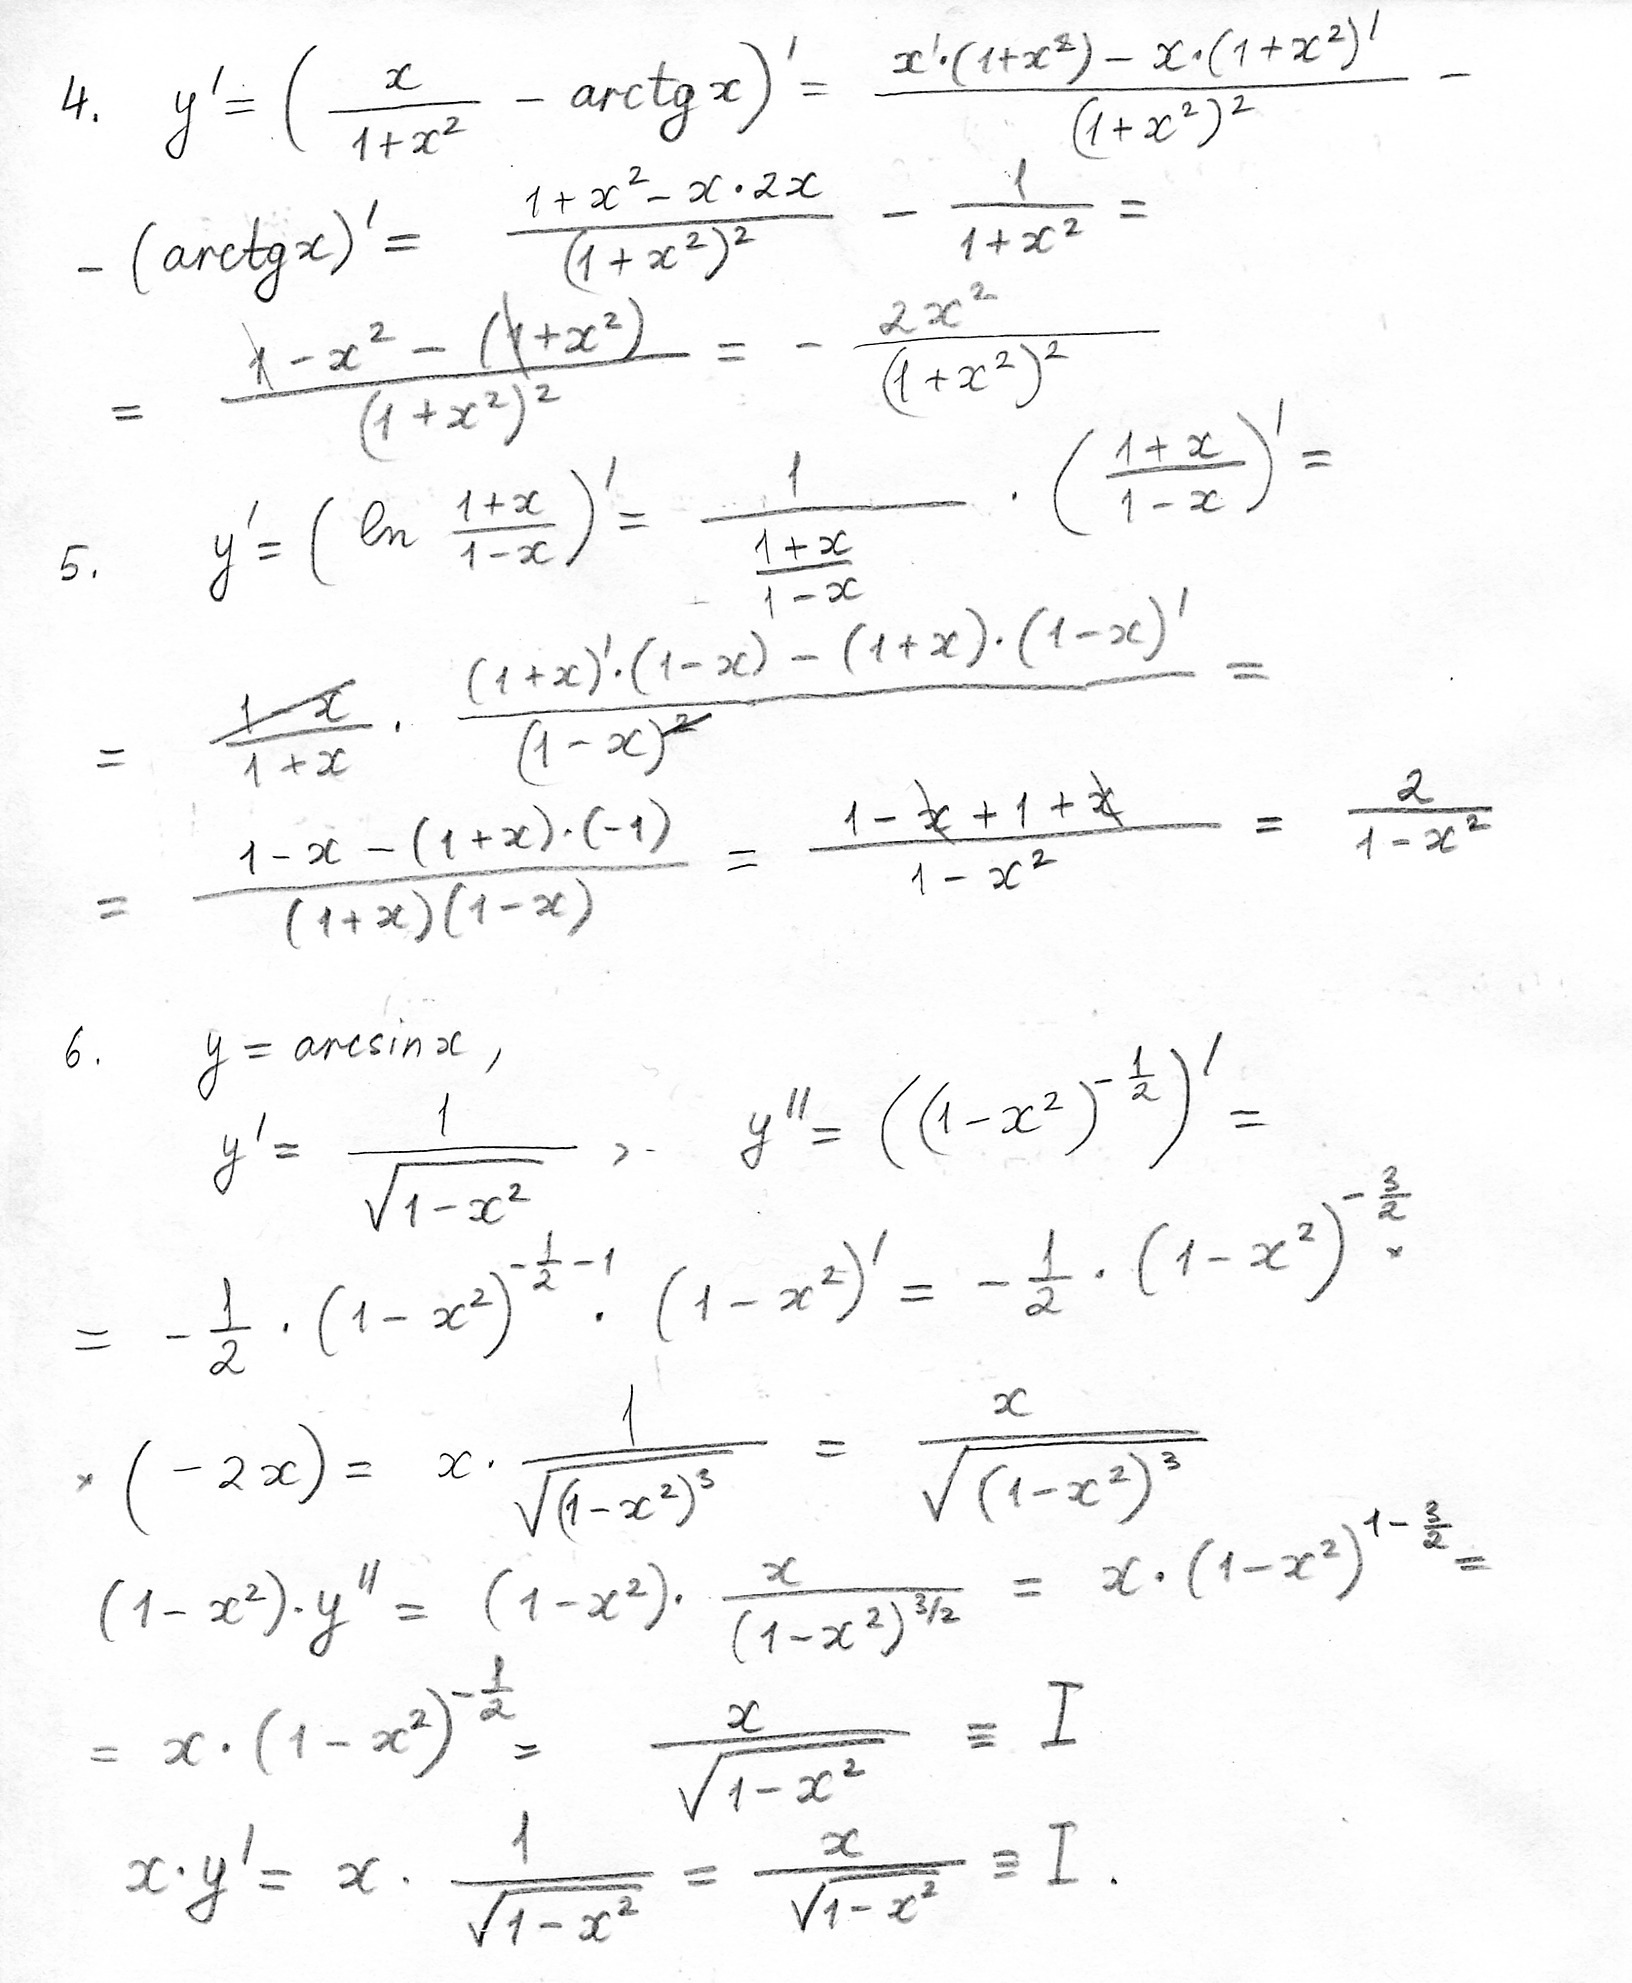 4. y' = ( x/(1+x²) − arctg x )' = (x'·(1+x²) − x·(1+x²)')/(1+x²)² −
− (arctg x)' = (1+x² − x·2x)/(1+x²)² − 1/(1+x²) =
= (1 − x² − (1+x²))/(1+x²)² = − 2x²/(1+x²)²
5. y' = ( ln (1+x)/(1−x) )' = 1/((1+x)/(1−x)) · ( (1+x)/(1−x) )' =
= (1−x)/(1+x) · ((1+x)'·(1−x) − (1+x)·(1−x)')/(1−x)² =
= (1−x − (1+x)·(−1))/((1+x)(1−x)) = (1−x+1+x)/(1−x²) = 2/(1−x²)
6. y = arcsin x,
y' = 1/√(1−x²), y'' = ((1−x²)^(−1/2))' =
= −1/2 · (1−x²)^(−1/2−1) · (1−x²)' = −1/2 · (1−x²)^(−3/2) ×
× (−2x) = x · 1/√((1−x²)³) = x/√((1−x²)³)
(1−x²)·y'' = (1−x²)· x/(1−x²)^(3/2) = x·(1−x²)^(1−3/2) =
= x·(1−x²)^(−1/2) = x/√(1−x²) ≡ I
x·y' = x · 1/√(1−x²) = x/√(1−x²) ≡ I.